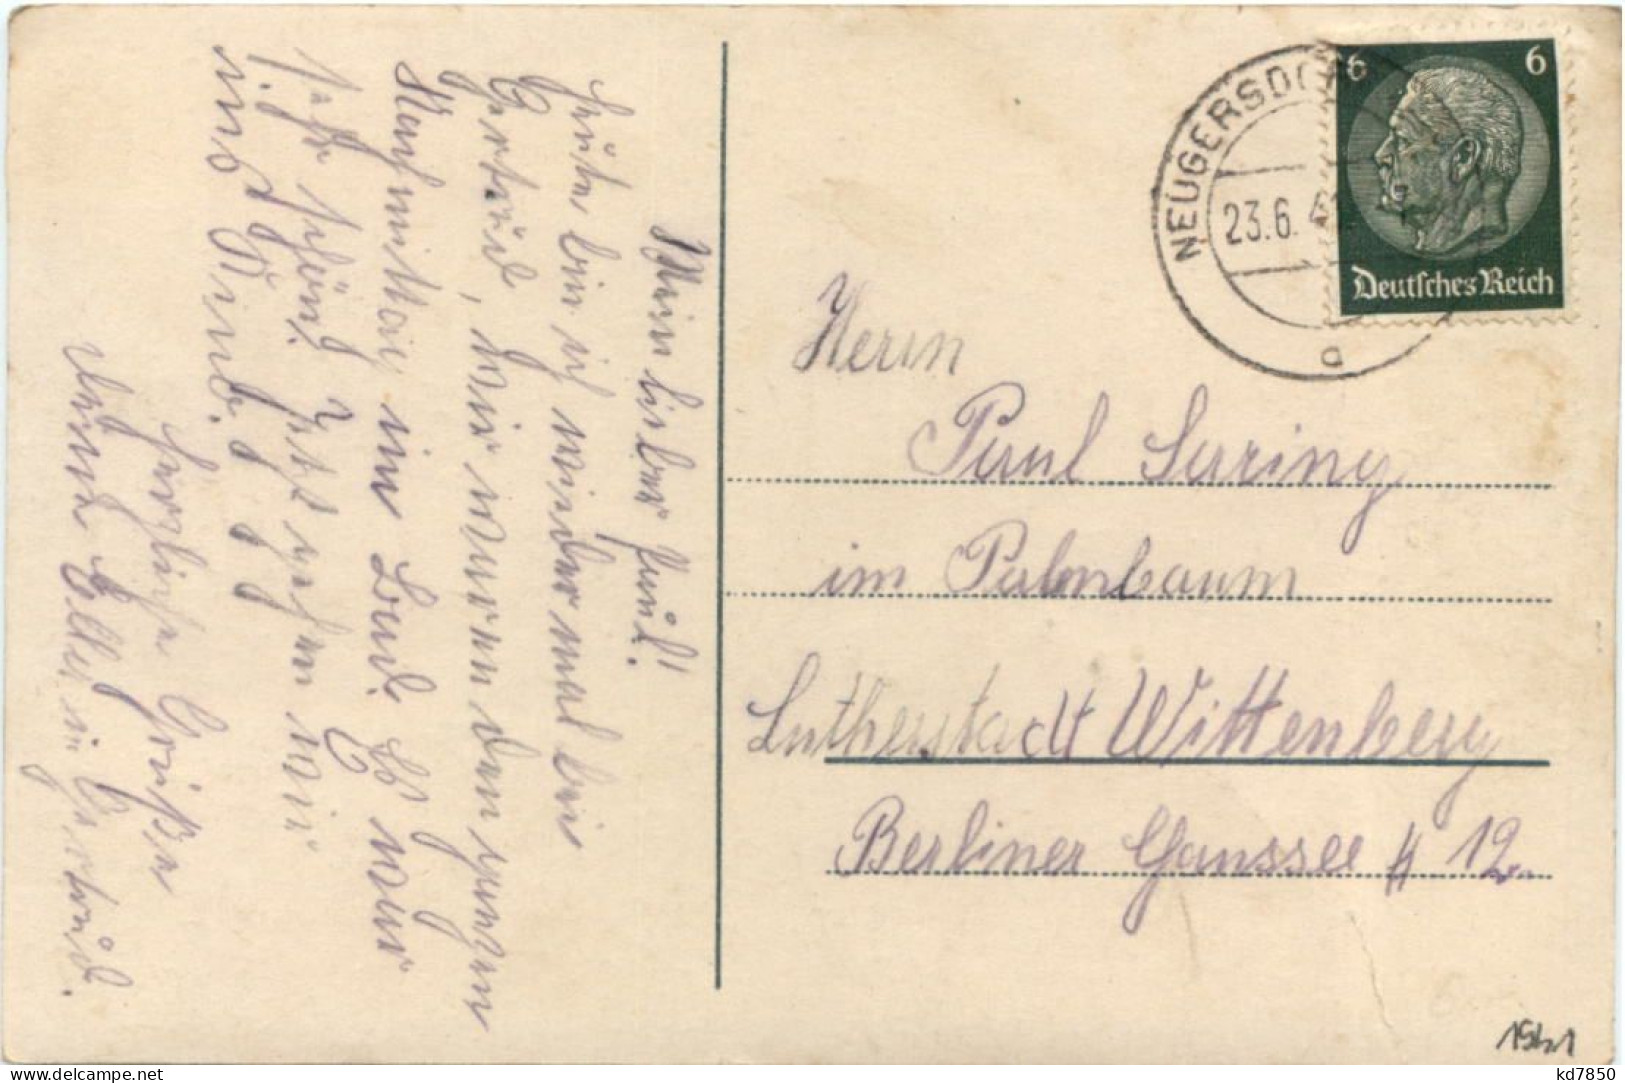 Mein lieber Paul!
Heute bin ich wieder mal bei
Gertrud, wir waren den ganzen
Nachmittag im Bad. Es war
sehr schön. Jetzt gehen wir
ins Kino.
Herzliche Grüße
Deine Elli und Gertrud.
NEUGERSDORF
23.6.
a
6 6
Deutsches Reich
Herrn
Paul Saring
im Palmbaum
Lutherstadt Wittenberg
Berliner Chaussee # 12.
1941
kd7850